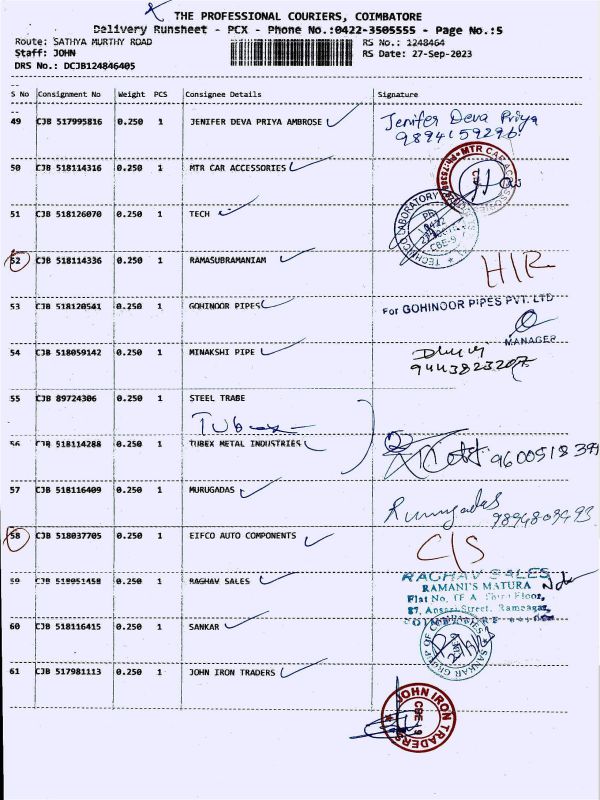 THE PROFESSIONAL COURIERS, COIMBATORE
Delivery Runsheet - PCX - Phone No.:0422-3505555 - Page No.:5
Route: SATHYA MURTHY ROAD RS No.: 1248464
Staff: JOHN RS Date: 27-Sep-2023
DRS No.: DCJB124846405
S No Consignment No Weight PCS Consignee Details Signature
49 CJB 517995816 0.250 1 JENIFER DEVA PRIYA AMBROSE Jenifer Deva Priya
9894159296
50 CJB 518114316 0.250 1 MTR CAR ACCESSORIES
MTR CAR ACCESSORIES
51 CJB 518126070 0.250 1 TECH
LABORATORY
CBE-9
52 CJB 518114336 0.250 1 RAMASUBRAMANIAM H/R
53 CJB 518120541 0.250 1 GOHINOOR PIPES For GOHINOOR PIPES PVT. LTD
MANAGER
54 CJB 518059142 0.250 1 MINAKSHI PIPE
9443823207
55 CJB 89724306 0.250 1 STEEL TRABE
Tubex
56 CJB 518114288 0.250 1 TUBEX METAL INDUSTRIES
57 CJB 518116409 0.250 1 MURUGADAS
9894809493
58 CJB 518037705 0.250 1 EIFCO AUTO COMPONENTS C/S
59 CJB 518051458 0.250 1 RAGHAV SALES RAGHAV SALES
RAMANI'S MATURA
Flat No. Floor,
87, Ansari Street, Ramnagar,
60 CJB 518116415 0.250 1 SANKAR
SANKAR GROUP OF
61 CJB 517981113 0.250 1 JOHN IRON TRADERS
JOHN IRON TRADERS
CBE-9